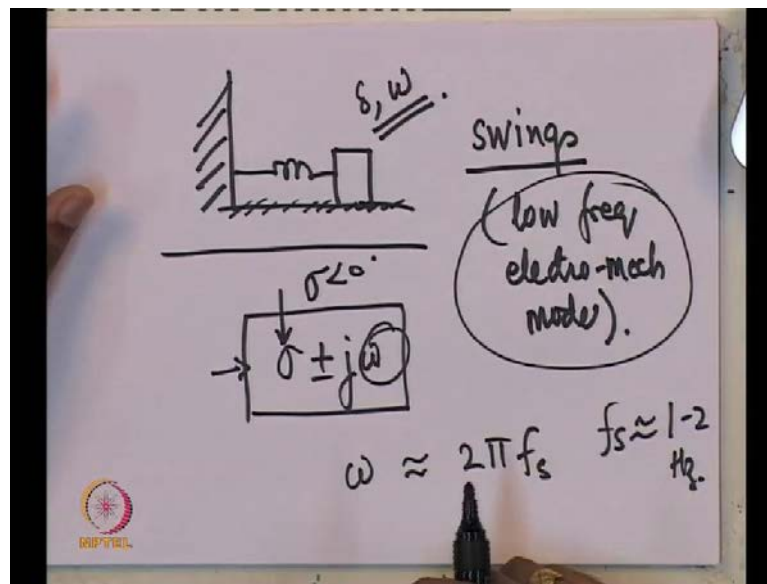 δ, ω.
swings
(low freq
electro-mech
modes).
σ<0
σ ± jω
ω ≈ 2πfs
fs ≈ 1-2
Hz.
NPTEL